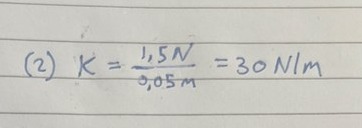 (2) K = 1,5N / 0,05m = 30 N/m